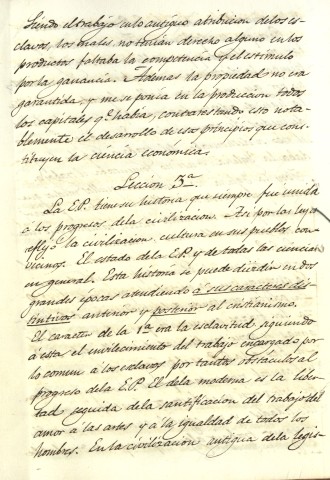 Siendo el trabajo en lo antiguo atribucion de los es-
clavos, los cuales no tenian derecho alguno en los
productos faltaba la competencia y el estimulo
por la ganancia. Ademas la propiedad no era
garantida, y no se ponia en la produccion todos
los capitales q.e habia, contrarestando esto nota-
blemente el desarrollo de esos principios que cons-
tituyen la ciencia economica.
Leccion 3a.
La E.P. tiene su historia que siempre fue unida
a los progresos de la civilizacion. Asi por las leyes
reflej. la civilizacion, cultura en sus pueblos con-
vecinos. El estado de la E.P. y de todas las ciencias
en general. Esta historia se puede dividir en dos
grandes epocas atendiendo à sus caractéres dis-
tintivos anterior y posterior al cristianismo.
El caracter de la 1.a era la esclavitud, siguiendo
á esta el envilecimiento del trabajo encargado por
lo comun a los esclavos por tantos obstáculos al
progreso de la E.P. El de la moderna es la liber-
tad seguida de la santificacion del trabajo del
amor à las artes y a la igualdad de todos los
hombres. En la civilizacion antigua de la legis-